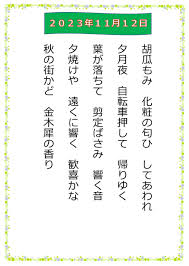 2023年11月12日
胡瓜もみ 化粧の匂ひ してあわれ
夕月夜 自転車押して 帰りゆく
葉が落ちて 剪定ばさみ 響く音
夕焼けや 遠くに響く 歓喜かな
秋の街かど 金木犀の香り